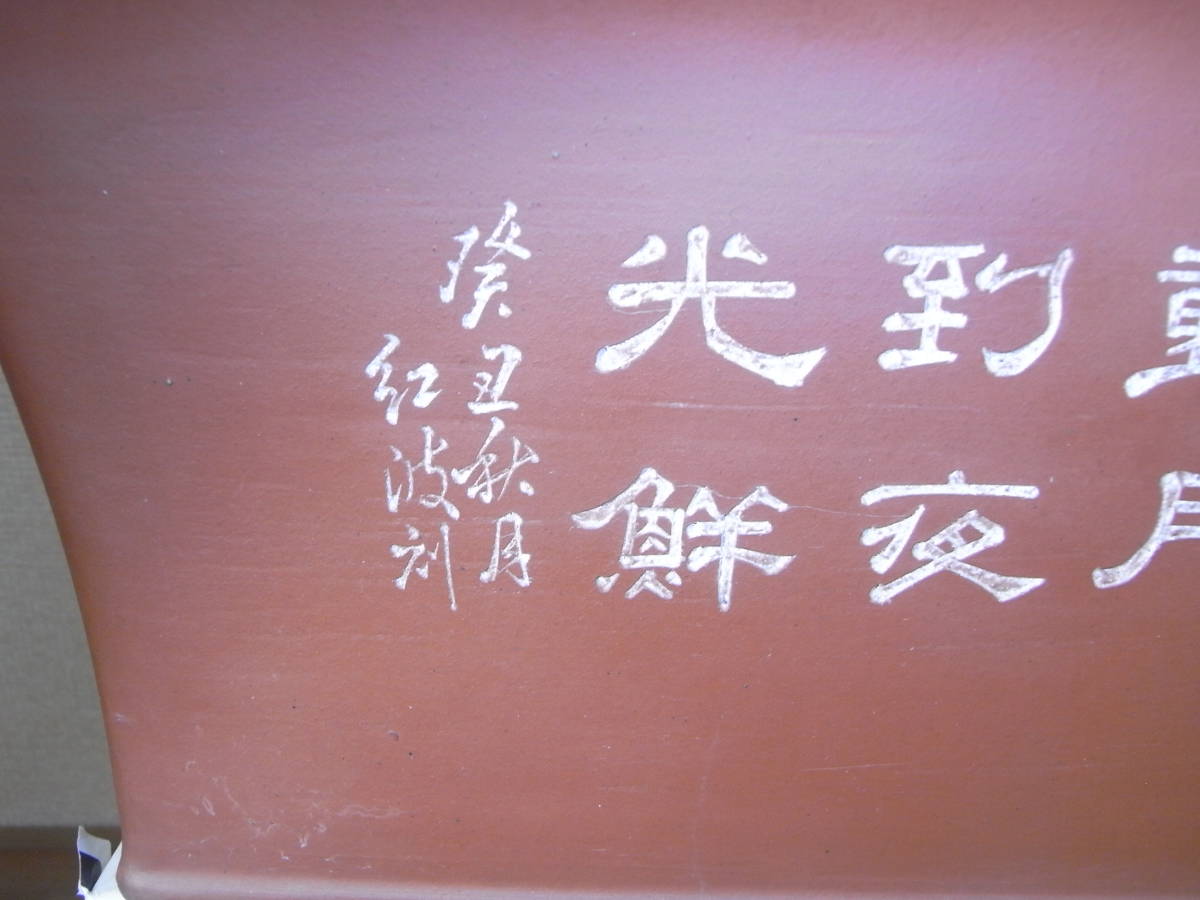 到夜
光鮮
癸丑秋月
红波刻